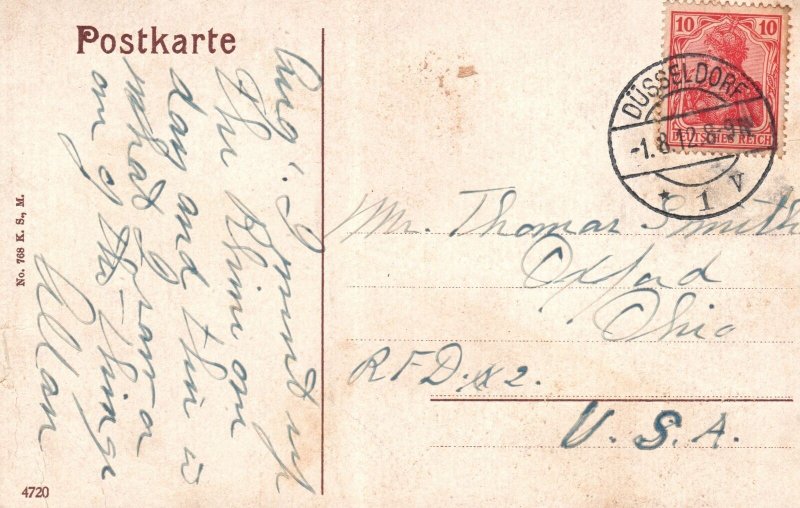 Postkarte
10 10
DEUTSCHES REICH
DÜSSELDORF
-1.8.12.8-9N
* 1 v
Mr. Thomas Smith
Oxford
Ohio
R F D. #2.
U. S. A.
Aug. 1. I went up
the Rhine on
day and this is
what I saw a
on of the things
Allan
No. 768 K. S., M.
4720